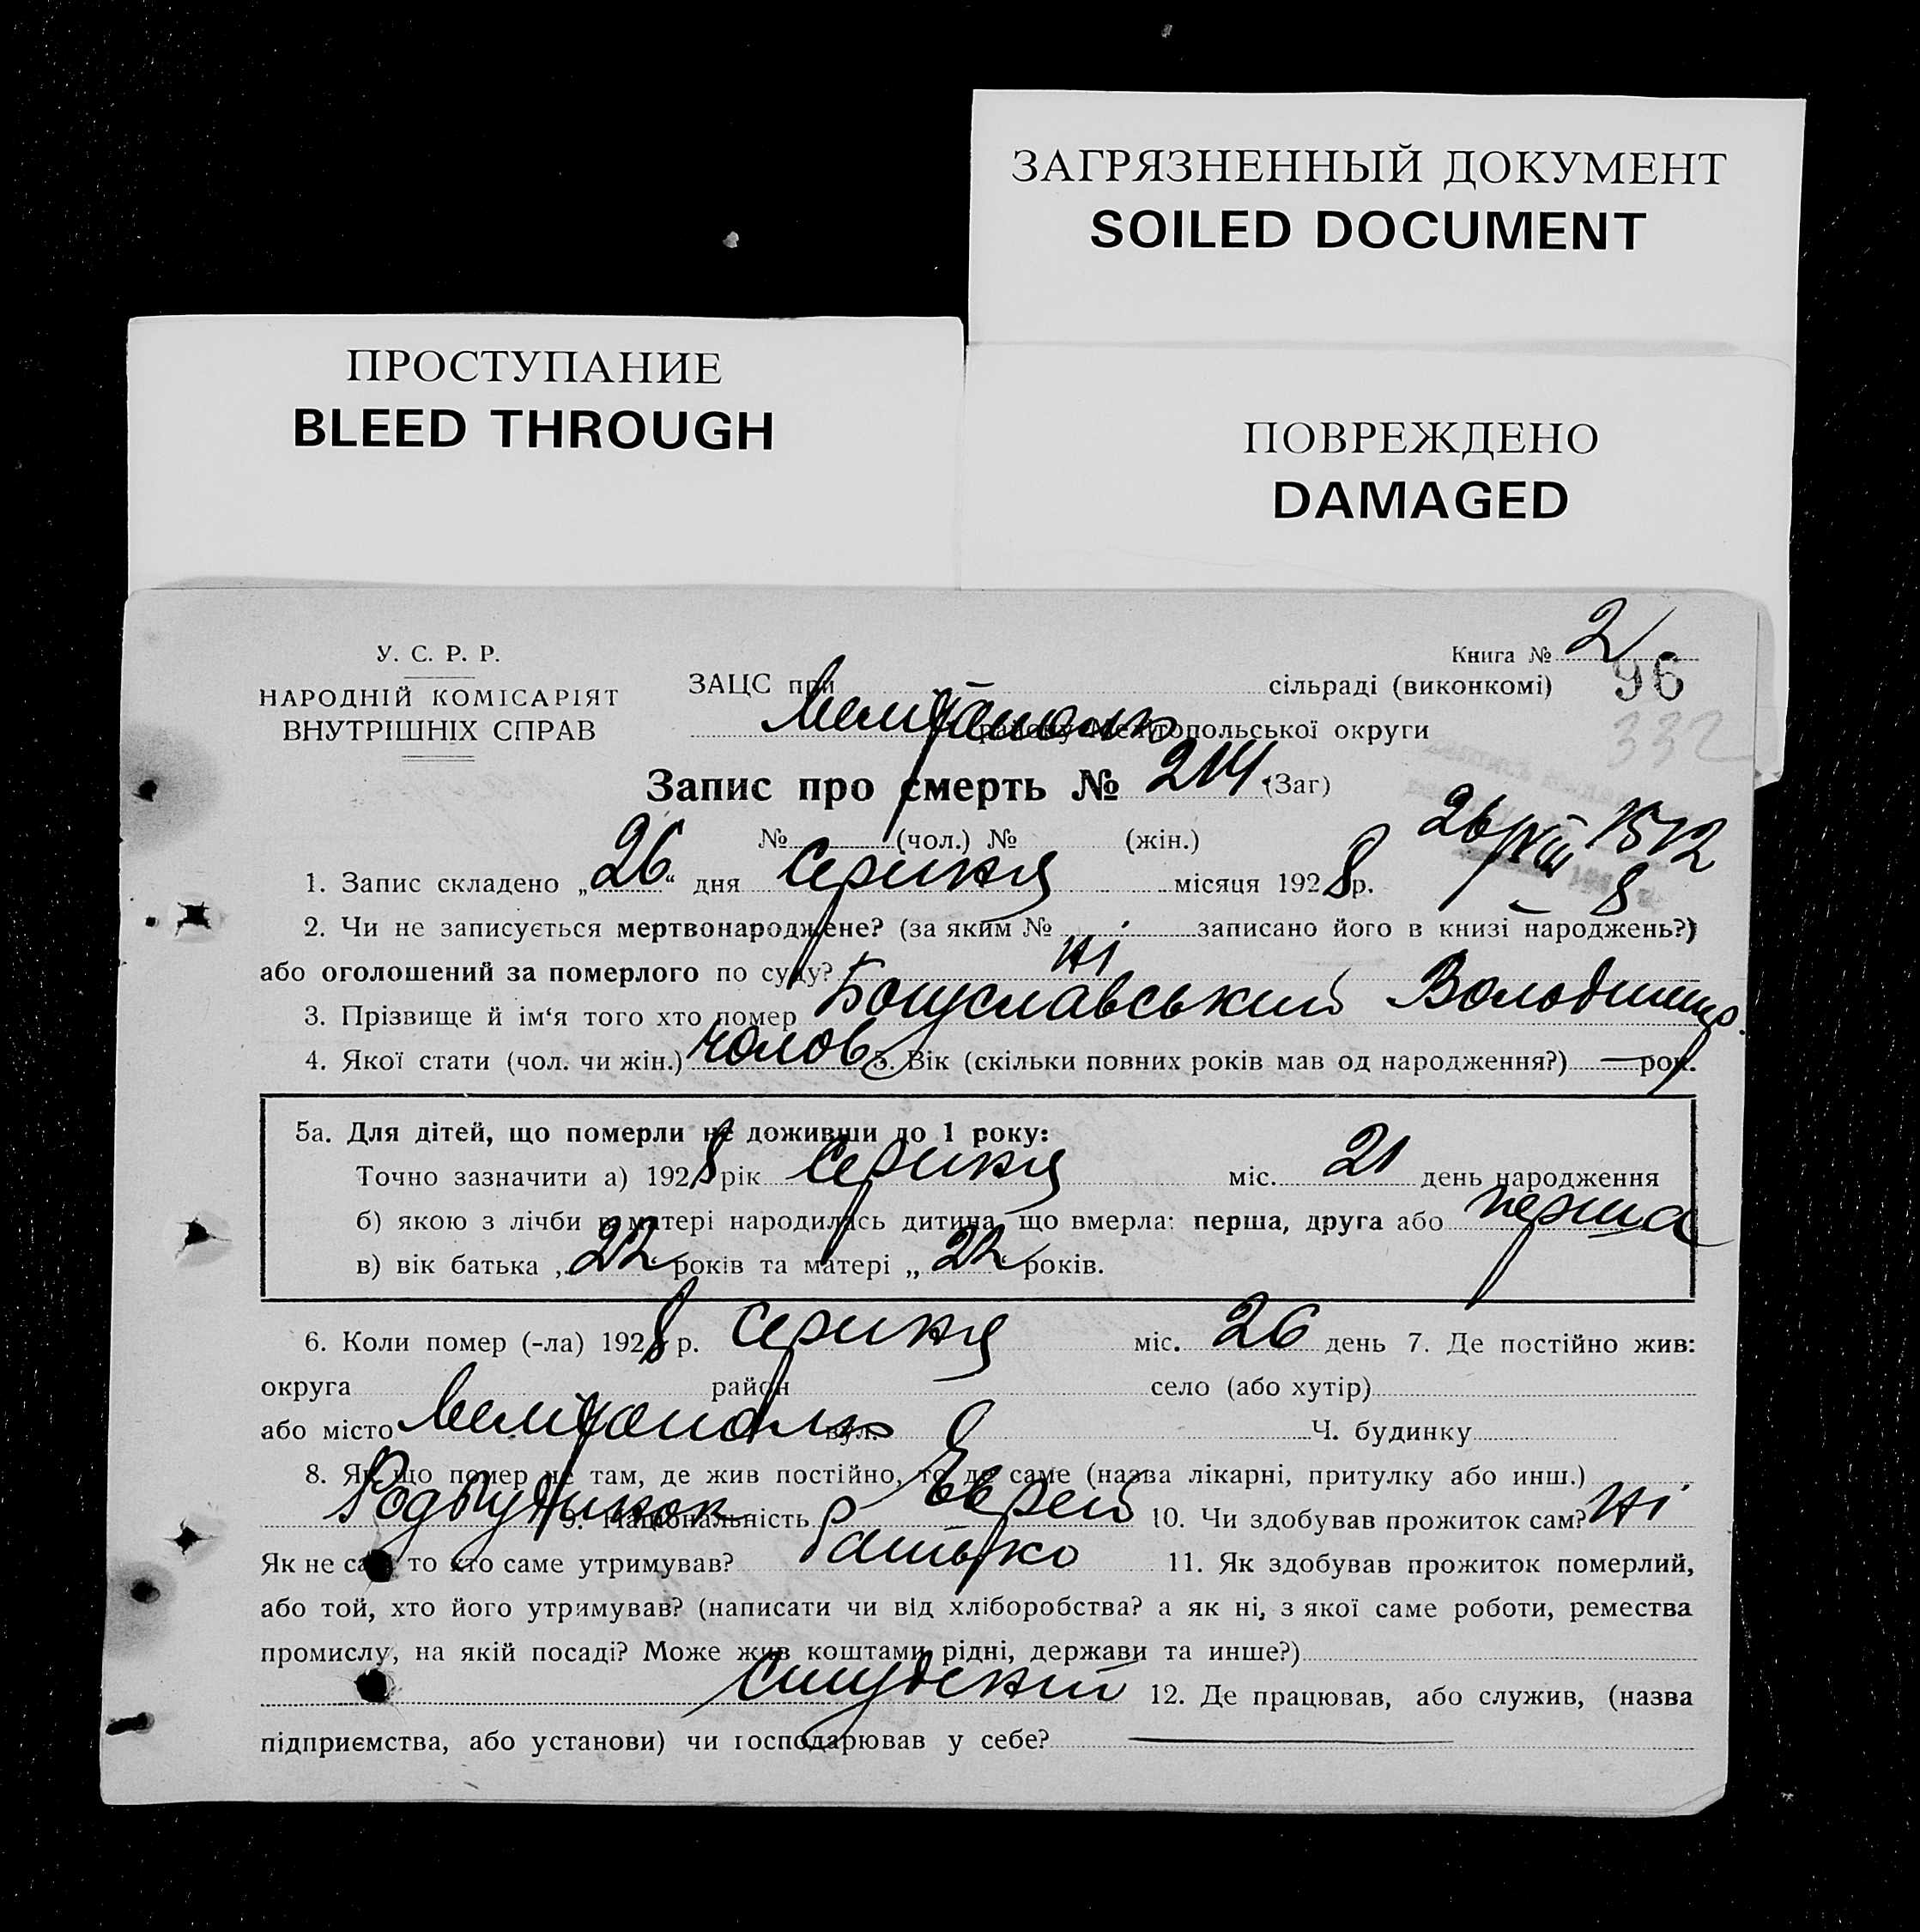 ЗАГРЯЗНЕННЫЙ ДОКУМЕНТ
SOILED DOCUMENT
ПРОСТУПАНИЕ
BLEED THROUGH
ПОВРЕЖДЕНО
DAMAGED
У. С. Р. Р.
НАРОДНІЙ КОМІСАРІЯТ
ВНУТРІШНІХ СПРАВ
Книга № 2
96
332
ЗАЦС при Мелітополь сільраді (виконкомі)
району Мелітопольської округи
Запис про смерть № 214 (Заг)
№ (чол.) № (жін.)
26/VIII 1512
8
1. Запис складено „26“ дня Серпня місяця 1928 р.
2. Чи не записується мертвонароджене? (за яким № записано його в книзі народжень?)
або оголошений за померлого по суду? Ні
3. Прізвище й ім‘я того хто помер Богуславський Володимир.
4. Якої стати (чол. чи жін.) чолов 5. Вік (скільки повних років мав од народження?) — рок.
5а. Для дітей, що померли не доживши до 1 року:
Точно зазначити а) 1928 рік Серпня міс. 21 день народження
б) якою з лічби в матері народилась дитина, що вмерла: перша, друга або перша
в) вік батька „ 22 років та матері „ 22 років.
6. Коли помер (-ла) 1928 р. Серпня міс. 26 день 7. Де постійно жив:
округа район село (або хутір)
або місто Мелітополь вул. Ч. будинку
8. Як що помер не там, де жив постійно, то де саме (назва лікарні, притулку або инш.)
Родбудинок 9. Національність Єврей 10. Чи здобував прожиток сам? Ні
Як не сам, то хто саме утримував? Батько 11. Як здобував прожиток померлий,
або той, хто його утримував? (написати чи від хліборобства? а як ні, з якої саме роботи, ремества
промислу, на якій посаді? Може жив коштами рідні, держави та инше?)
12. Де працював, або служив, (назва
підприємства, або установи) чи господарював у себе? —